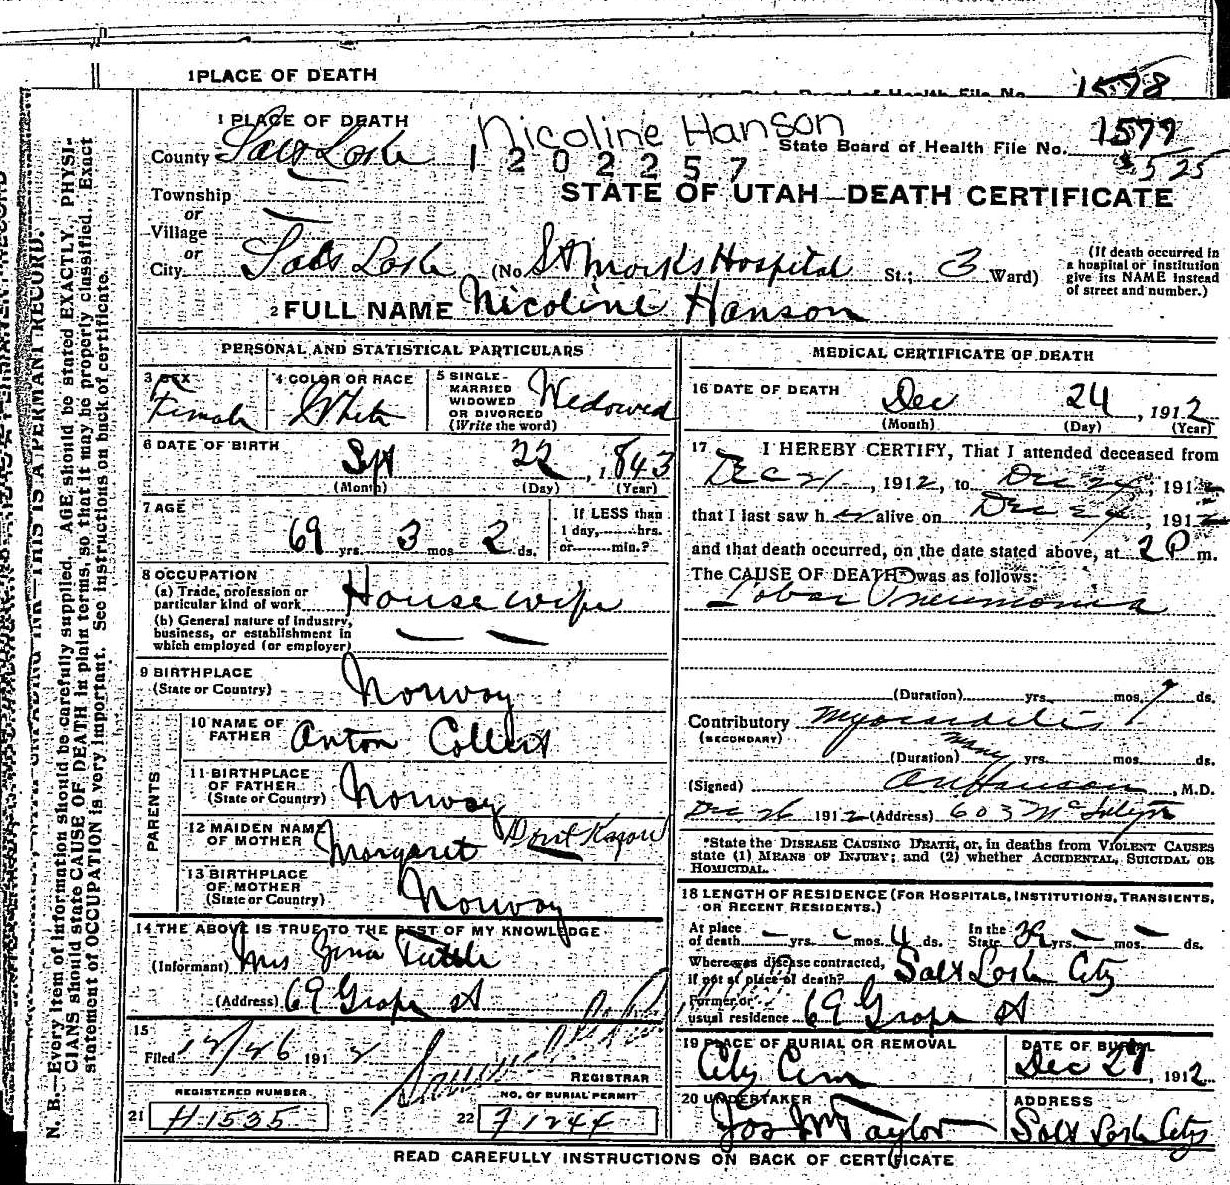 1 PLACE OF DEATH
1578
1 PLACE OF DEATH
Nicoline Hanson
State Board of Health File No. 1579
County Salt Lake
1202257
3525
Township
or
Village
or
STATE OF UTAH—DEATH CERTIFICATE
City Salt Lake (No St Marks Hospital St.; 3 Ward)
(If death occurred in
a hospital or institution
give its NAME instead
of street and number.)
2 FULL NAME Nicoline Hanson
PERSONAL AND STATISTICAL PARTICULARS
3 SEX
Female
4 COLOR OR RACE
White
5 SINGLE-
MARRIED
WIDOWED
OR DIVORCED
(Write the word)
Widowed
6 DATE OF BIRTH
Sept 22, 1843
(Month) (Day) (Year)
7 AGE
69 yrs. 3 mos 2 ds.
If LESS than
1 day, hrs.
or min.?
8 OCCUPATION
(a) Trade, profession or
particular kind of work House wife
(b) General nature of industry,
business, or establishment in
which employed (or employer)
9 BIRTHPLACE
(State or Country)
Norway
PARENTS
10 NAME OF
FATHER
Anton
11 BIRTHPLACE
OF FATHER
(State or Country)
Norway
12 MAIDEN NAME
OF MOTHER
Margaret Dont Know
13 BIRTHPLACE
OF MOTHER
(State or Country)
Norway
14 THE ABOVE IS TRUE TO THE BEST OF MY KNOWLEDGE
(Informant) Mrs Tuttle
(Address) 69 Grape St
15
Filed 12/26 1912
REGISTRAR
REGISTERED NUMBER
21 H1535
NO. OF BURIAL PERMIT
22 71244
MEDICAL CERTIFICATE OF DEATH
16 DATE OF DEATH
Dec 24, 1912
(Month) (Day) (Year)
17 I HEREBY CERTIFY, That I attended deceased from
Dec 21, 1912, to Dec 24, 1912
that I last saw her alive on Dec 24, 1912
and that death occurred, on the date stated above, at 2 P m.
The CAUSE OF DEATH* was as follows:
Lobar Pneumonia
(Duration) yrs. mos. 7 ds.
Contributory Myocarditis
(SECONDARY)
(Duration) many yrs. mos. ds.
(Signed) Hanson, M.D.
Dec 26 1912 (Address) 603 McIntyre
*State the DISEASE CAUSING DEATH, or, in deaths from VIOLENT CAUSES
state (1) MEANS OF INJURY; and (2) whether ACCIDENTAL, SUICIDAL OR
HOMICIDAL.
18 LENGTH OF RESIDENCE (FOR HOSPITALS, INSTITUTIONS, TRANSIENTS,
OR RECENT RESIDENTS.)
At place
of death yrs. mos. 4 ds.
In the
State yrs. mos. ds.
Where was disease contracted,
if not at place of death? Salt Lake City
Former or
usual residence 69 Grape St
19 PLACE OF BURIAL OR REMOVAL
City Cem
DATE OF BURIAL
Dec 27, 1912
20 UNDERTAKER
Jos Wm Taylor
ADDRESS
Salt Lake City
READ CAREFULLY INSTRUCTIONS ON BACK OF CERTIFICATE
N. B.—Every item of information should be carefully supplied. AGE should be stated EXACTLY. PHYSI-
CIANS should state CAUSE OF DEATH in plain terms, so that it may be properly classified. Exact
statement of OCCUPATION is very important. See instructions on back of certificate.
INK—THIS IS A PERMANENT RECORD.